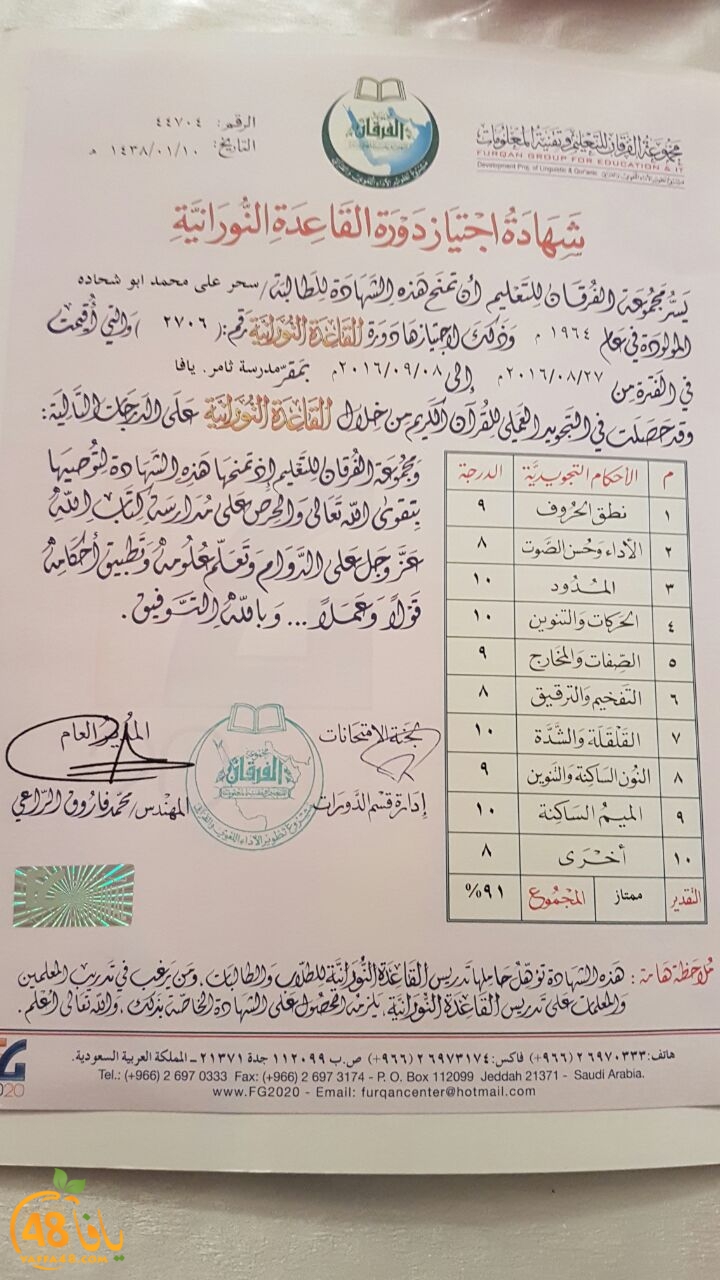 الرقم: ٤٤٧٠٤
التاريخ: ١٤٣٨/٠١/١٠ هـ
الفرقان
مجموعة الفرقان للتعليم وتقنية المعلومات
FURQAN GROUP FOR EDUCATION & IT
Development Proj. of Linguistic & Qur'anic
شَهَادَةُ اجْتِيَاز دَوْرَة القَاعِدَةِ النُّورَانِيَّة
يَسُرُّ مَجْمُوعَة الفُرْقَان لِلتَّعْلِيم أن تمنح هَذِهِ الشَّهَادَة لِلطَّالِبَة / سحر على محمد ابو شحاده
المولودة في عَام ١٩٦٤ م وَذَلِكَ لِاجتِيَازِهَا دَورَة القَاعِدَة النُّورَانِيَّة رَقم: ( ٢٧٠٦ ) وَالتِي أُقِيمَت
في الفَترَة مِن ٢٠١٦/٠٨/٢٧م إلى ٢٠١٦/٠٩/٠٨م بمَقَرّ مدرسة ثامر. يافا
وَقد حَصَلَت في التجويد العَملي لِلقُرآن الكَرِيم مِن خِلَال القَاعِدَة النُّورَانِيَّة عَلَى الدَرجَات التَّالِيَة:
م الأحكام التجويديَّة الدرجة
١ نطق الحُروف ٩
٢ الأداء وحُسن الصَّوت ٨
٣ المُدُود ١٠
٤ الحَركَات والتنوين ١٠
٥ الصِّفات والمَخارج ٩
٦ التفخيم والترقيق ٨
٧ القَلقَلة والشَّدَّة ١٠
٨ النُون السَاكنة والتَنوين ٩
٩ الميمُ السَاكِنة ١٠
١٠ أخْرَى ٨
التقدير ممتاز المجْمُوع ٩١%
وَمَجمُوعَة الفُرقَان لِلتَّعلِيم إذ تمنحهَا هَذِهِ الشَّهَادَة لتُوصِيهَا
بِتَقوَى الله تَعَالى وَالحِرص عَلَى مُدَارسَة كِتَاب اللهِ
عَزَّ وَجَل عَلَى الدَّوَام وَتَعَلّم عُلُومِهِ وَتَطبِيقِ أحكَامِهِ
قَولاً وَعَمَلاً ... وَبِاللهِ التَّوفِيق .
لجنَة الإمتحَانات
إدَارة قِسْم الدَّورَات
الفرقان
المُدِير العَام
المهَندِس/ محمّد فَارُوق الرَّاعِي
مُلَاحَظَة هَامَة : هَذِهِ الشَّهَادَة تُؤَهّل حَامِلهَا تَدرِيس القَاعِدَة النُّورَانِيَّة لِلطُّلَّاب وَالطَالِبَات، وَمَن يَرغَب في تَدرِيب المُعَلمِين
وَالمُعَلمَات عَلَى تَدرِيس القَاعِدَة النُّورَانِيَّة، يَلزَمهُ الحُصُول عَلَى الشَّهَادَة الخَاصَّة بِذَلِكَ، وَاللهُ تعَالى أعْلَم .
هاتف: ٢٦٩٧٠٣٣٣ (٩٦٦+) فاكس: ٢٦٩٧٣١٧٤ (٩٦٦+) ص.ب ١١٢٠٩٩ جدة ٢١٣٧١ - المملكة العربية السعودية.
Tel.: (+966) 2 697 0333 Fax: (+966) 2 697 3174 - P. O. Box 112099 Jeddah 21371 - Saudi Arabia.
www.FG2020 - Email: furqancenter@hotmail.com
يافا 48